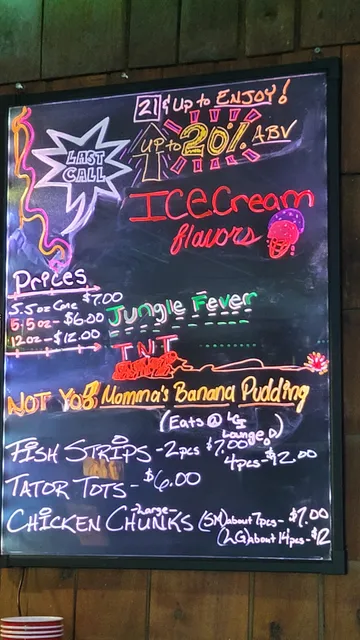 21 & Up to ENJOY!
LAST CALL
UP to 20% ABV
ICE Cream
flavors
Prices
5.5oz Cone $7.00
5.5oz - $6.00
12oz - $12.00
Jungle Fever
TNT
NOT YO Momma's Banana Pudding
(Eats @ LG Lounge)
FISH STRIPS - 2pcs $7.00
4pcs - $12.00
TATOR TOTS - $6.00
Large
CHICKEN CHUNKS (SM) about 7pcs - $7.00
(LG) about 14pcs - $12